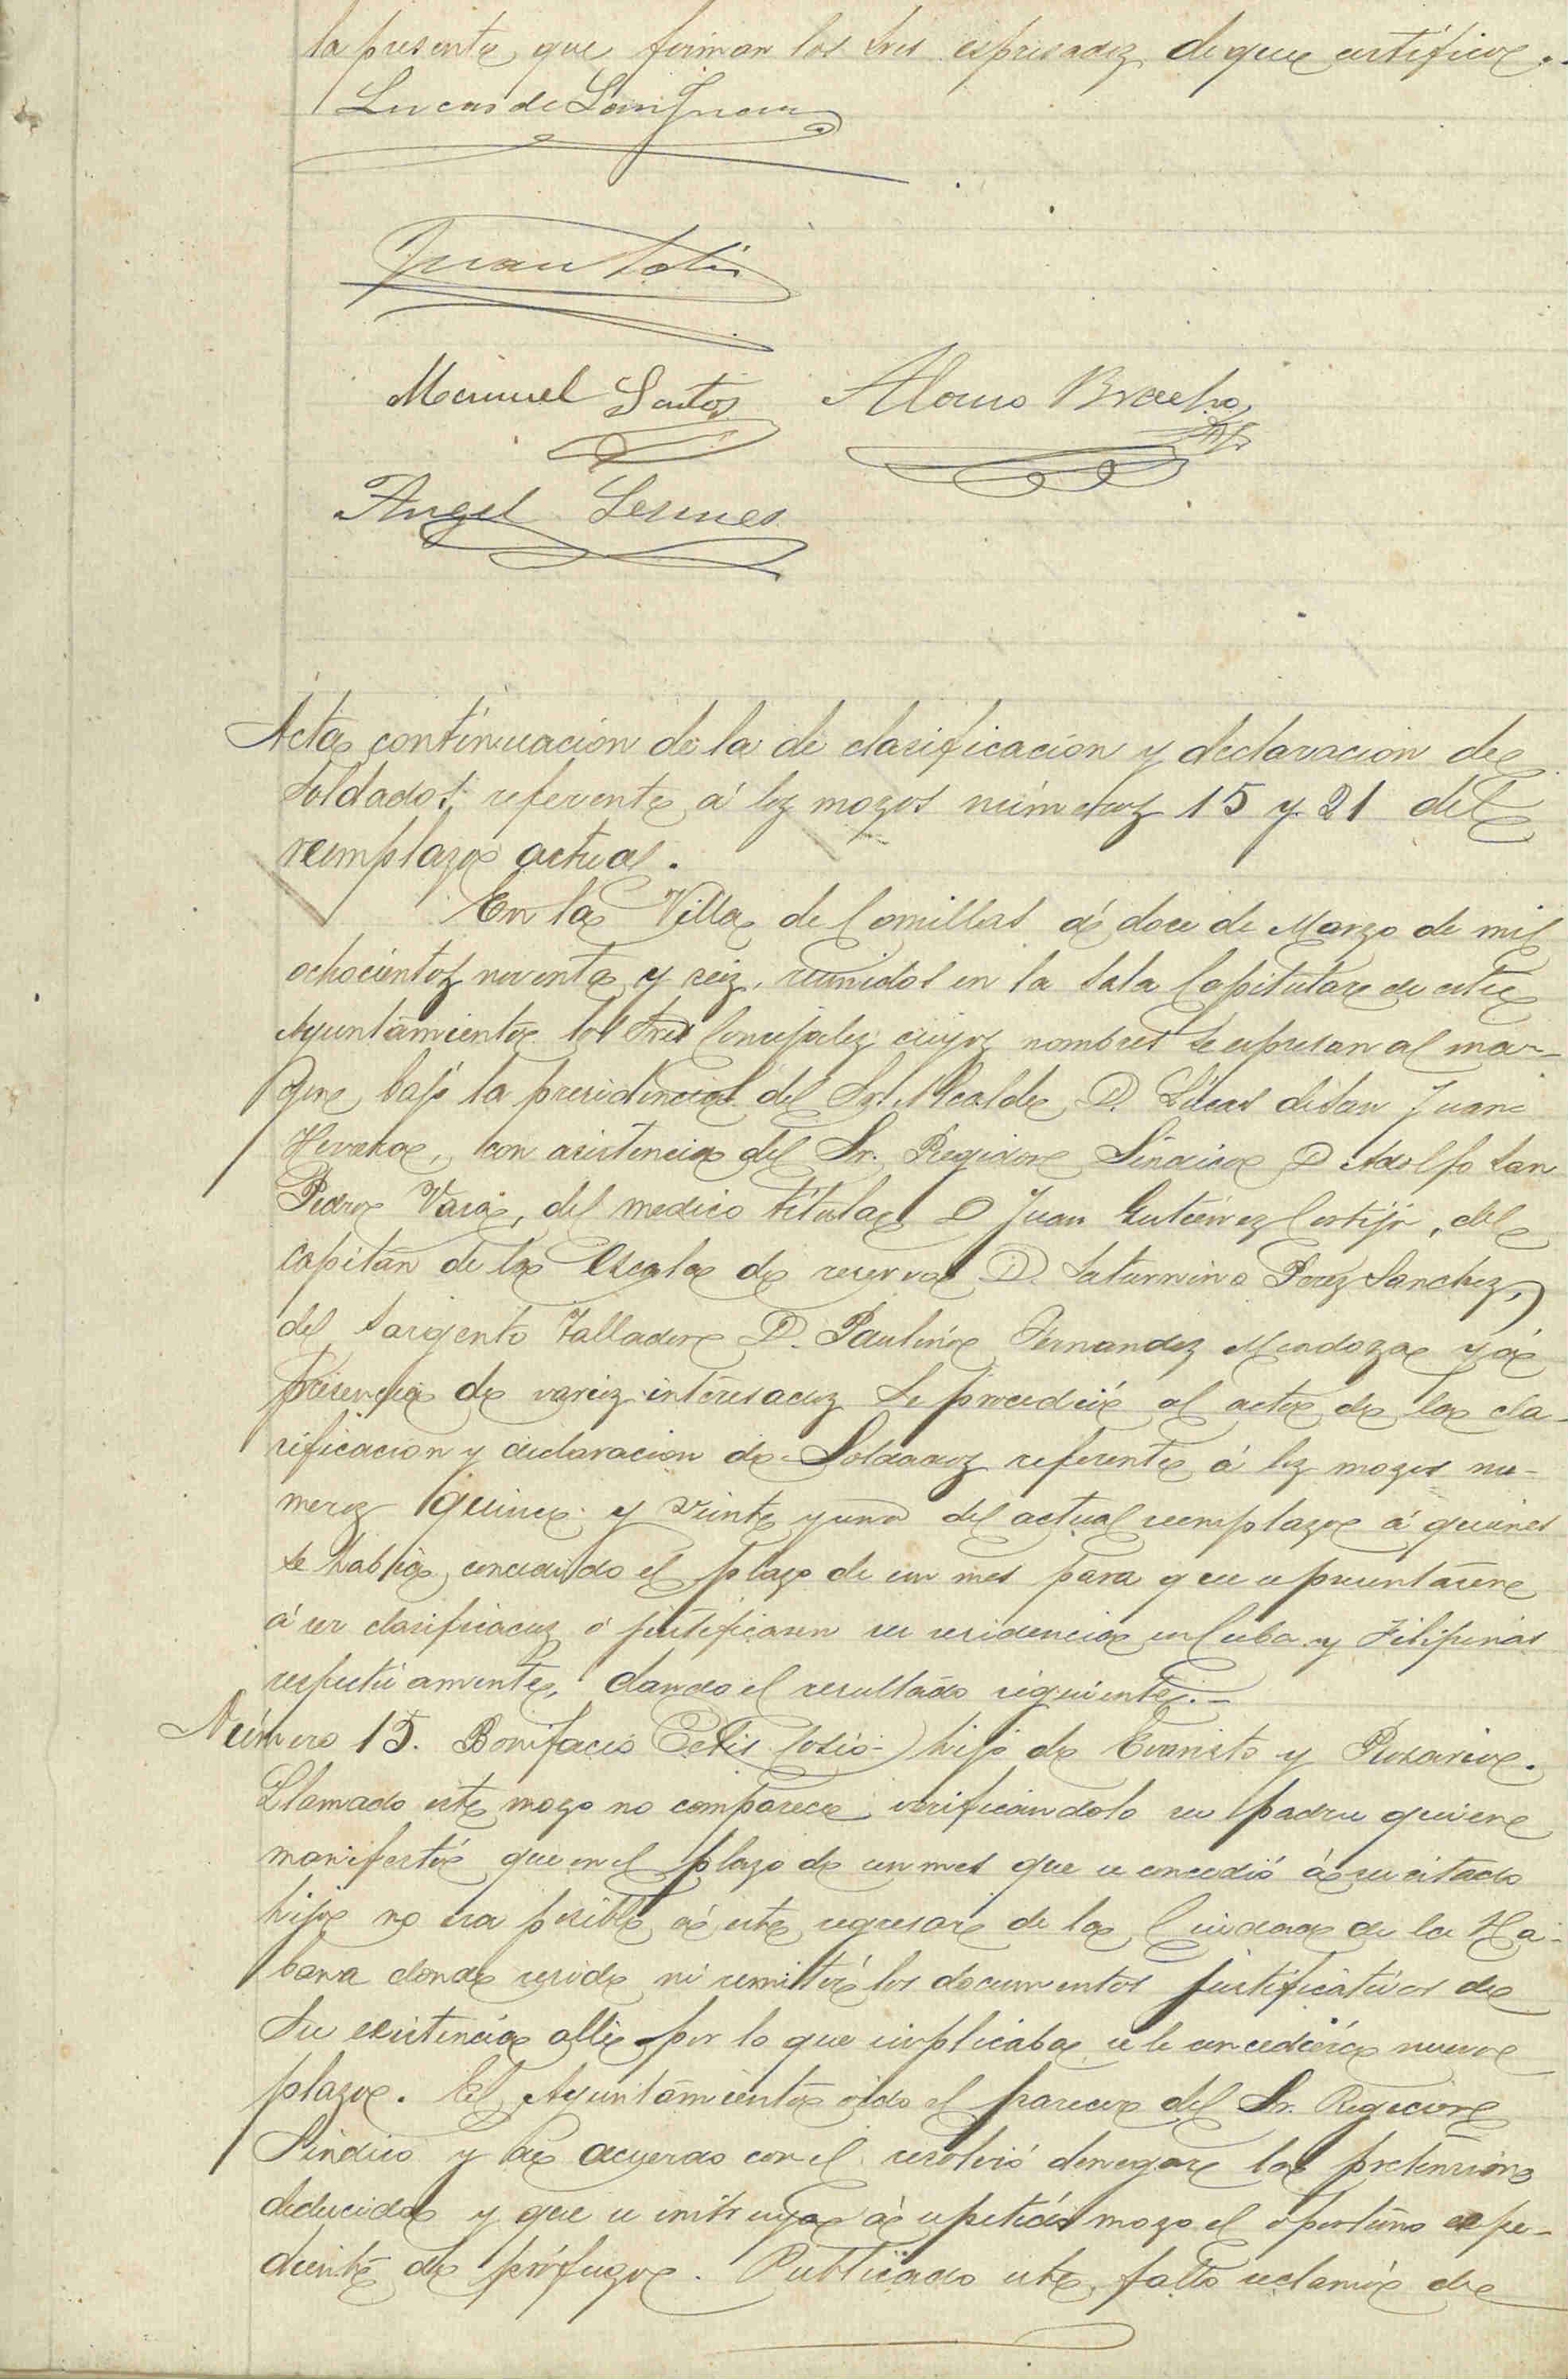 la presente que firman los Sres espresados, de que certifico.
Lucas de San Juan
Juan
Manuel Santos
Alonso Bracho
Angel Lesmes
Acta continuación de la de clasificación y declaracion de
soldados, referente á los mozos números 15 y 21 del
reemplazo actual.
En la Villa de Comillas á doce de Marzo de mil
ochocientos noventa y seis, reunidos en la Sala Capitular de este
Ayuntamiento los Sres Concejales cuyos nombres se espresan al mar-
gen, bajo la presidencia del Sr. Alcalde D. Lúcas de San Juan
con asistencia del Sr. Regidor Síndico D Adolfo San
Pedro Vara, del medico titular D Juan Gutiérrez Cortijo, del
capitán de la Escala de reserva D. Saturnino Perez Sanchez,
del Sargento Tallador D. Paulino Fernandez Mendoza y á
presencia de varios interesados se procedió al acto de la cla
sificacion y declaracion de Soldados referente á los mozos nu-
meros quince y veinte y uno del actual reemplazo á quienes
se había concedido el plazo de un mes para que se presentasen
á ser clasificados ó justificasen su residencia en Cuba y Filipinas
respectivamente, dando el resultado siguiente.-
Número 15. Bonifacio Cosío hijo de Evaristo y Rosario.
Llamado este mozo no comparece verificándolo su padre quien
manifestó que en el plazo de un mes que se concedió á su citado
hijo no era posible á este regresar de la Ciudad de la Ha-
bana donde reside ni remitir los documentos justificativos de
su existencia allí por lo que suplicaba se le concediera nuevo
plazo. El Ayuntamiento oido el parecer del Sr. Regidor
Síndico y de acuerdo con el resolvió denegar la pretension
deducida y que se instruya á mozo el oportuno espe-
diente de prófugo. Publicado este fallo reclamó de